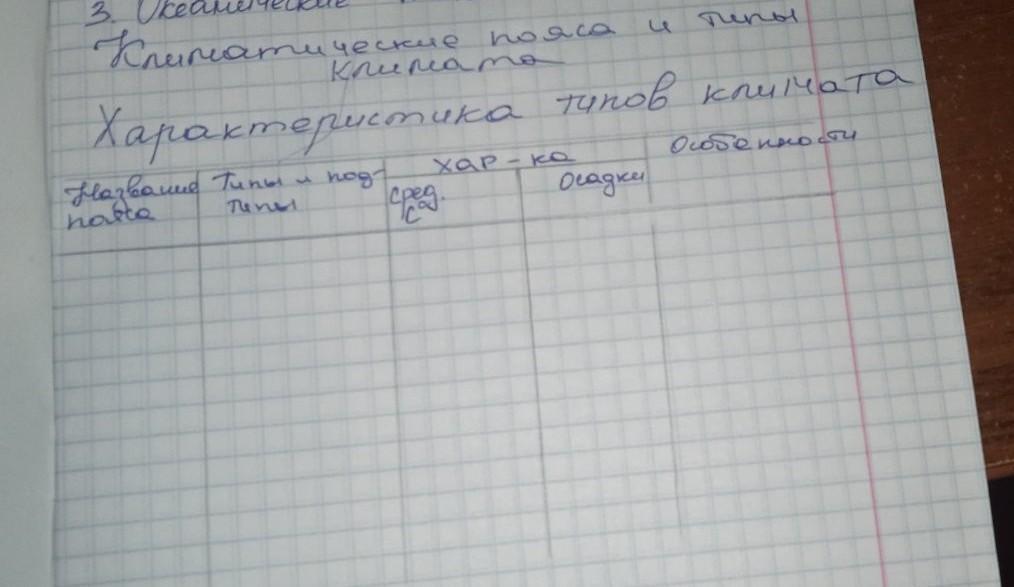 3. Океанические
Климатические пояса и типы
климата
Характеристика типов климата
Название пояса
Типы и под-
типы
хар-ка
сред.
t°
Осадки
Особенности